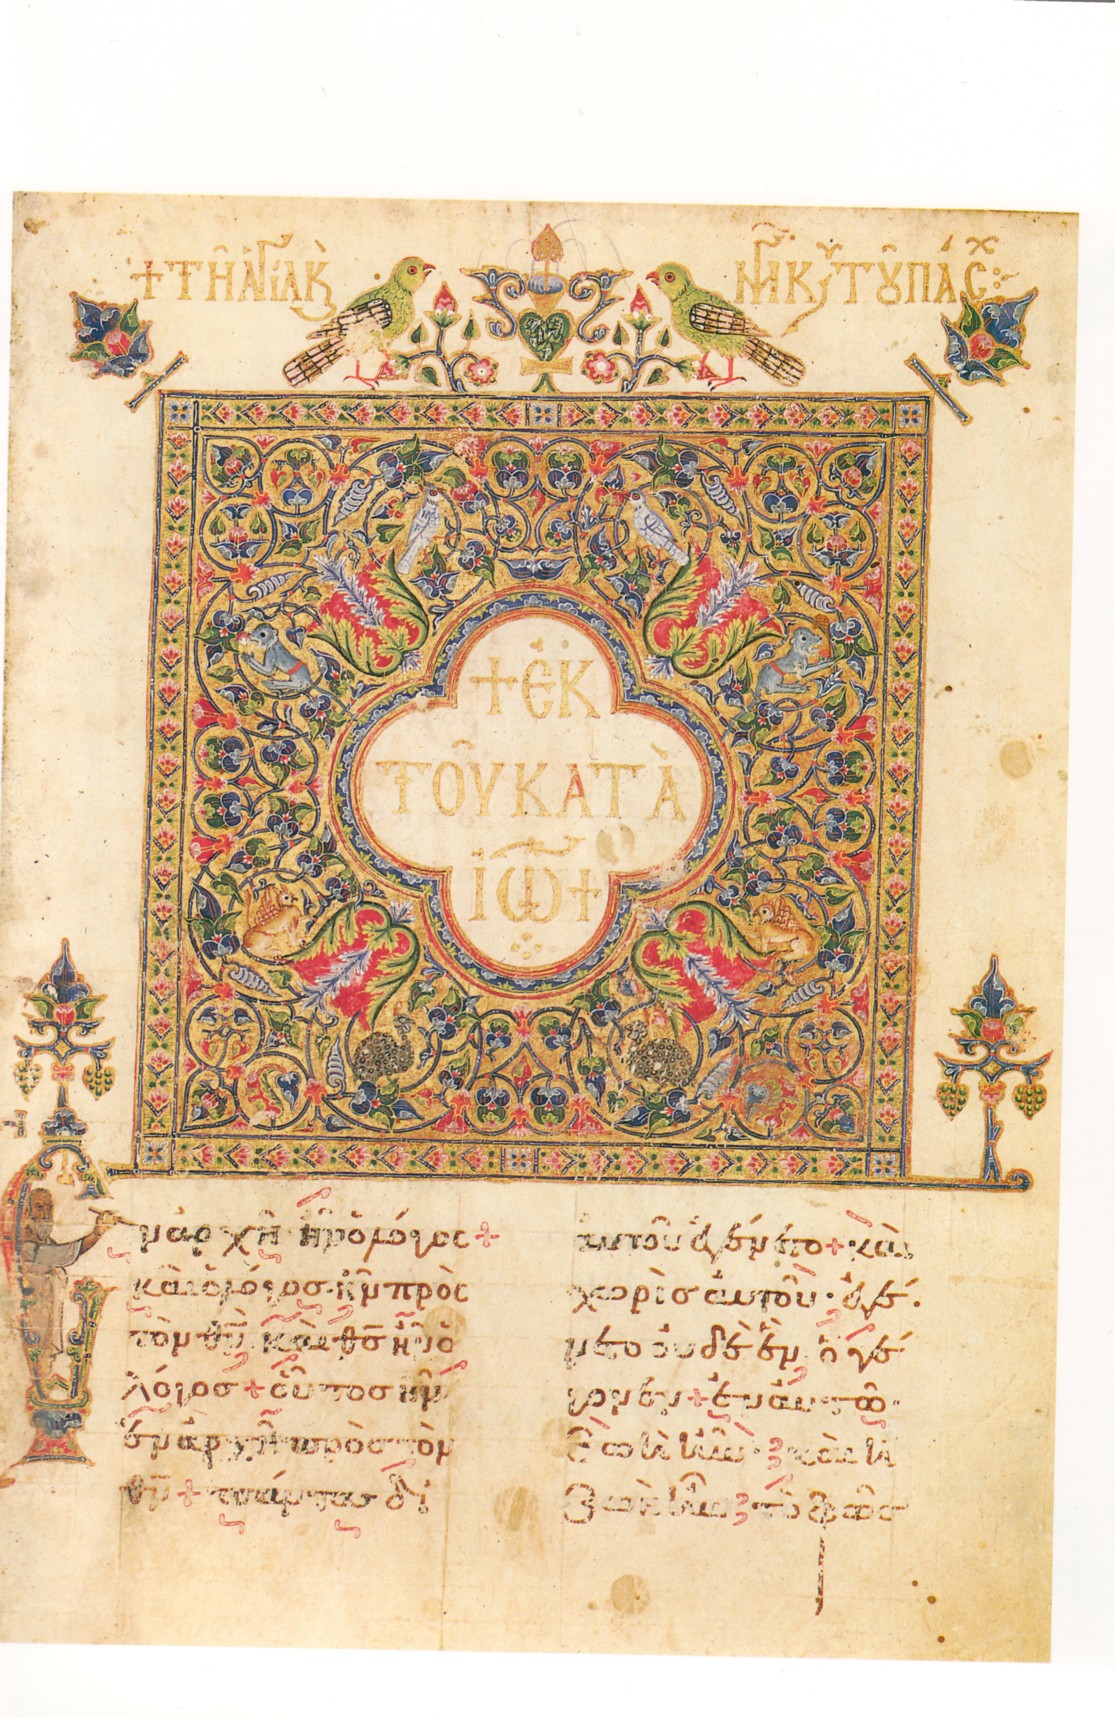 + τῆ ἁγία κ̀ μ̓ κυ τοῦ πάσχ:
+ ἐκ
τοῦ κατὰ
ἰω +
ν ἀρχῆ ἦν ὁ λόγος +
καὶ ὁ λόγοσ ἦν πρὸς
τὸν θν̄, καὶ θσ̄ ἦν ὁ
λόγοσ + οὗτοσ ἦν
ἐν ἀρχῆ πρὸσ τὸν
θν̄ + πάντα δι
αυτοῦ ἐγένετο + καὶ
χωρὶσ αυτοῦ ἐγέ
νετο οὐδὲ ἕν ὃ γέ
γονεν + ἐν αυτῶ
ζωὴ ἦν καὶ ἡ
ζωὴ ἦν τὸ φῶσ